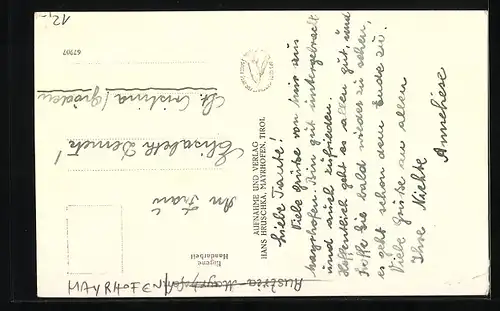 12,-
67907
Liebe Tante!
Viele Grüße von hier aus
Mayrhofen. Bin gut untergebracht
und auch zufrieden.
Hoffentlich geht es allen gut, und
hoffe Sie bald wieder zu sehen,
es geht schon dem Ende zu.
Viele Grüße an allen
Ihre Nichte
Anneliese
AUFNAHME UND VERLAG
HANS HRUSCHKA, MAYRHOFEN, TIROL
Eigene
Handarbeit
An Frau
Elisabeth
St. Cristina / Gröden
Austria - Mayrhofen
MAYRHOFEN